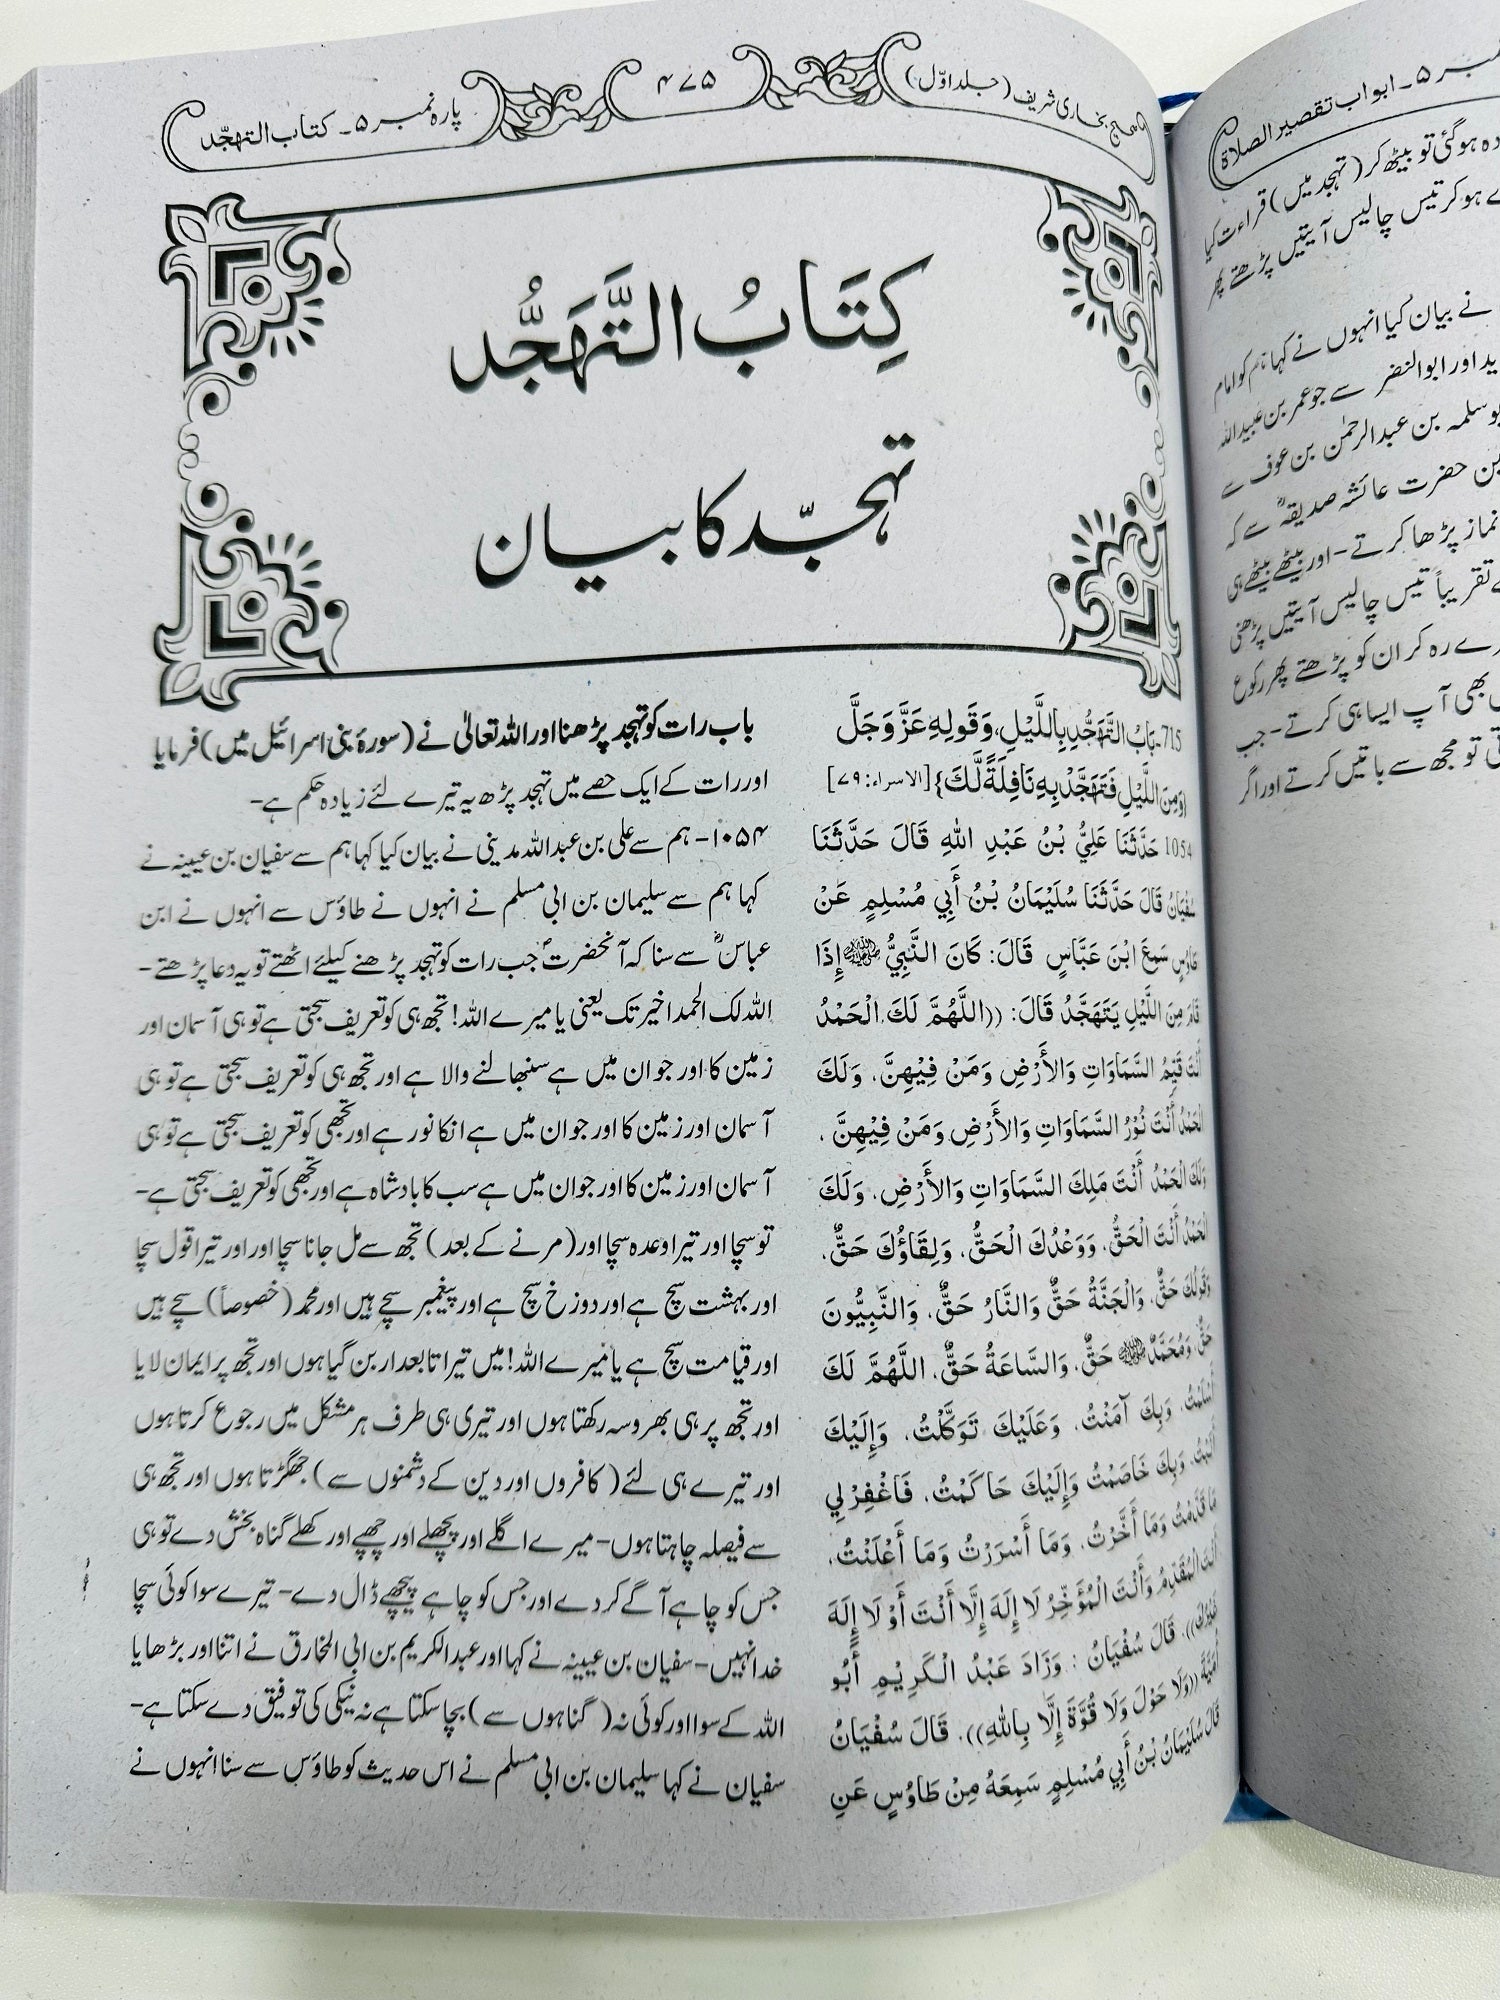 صحیح بخاری شریف (جلد اوّل)
۴۷۵
پارہ نمبر ۵۔ کتاب التہجّد
كِتَابُ التَّهَجُّد
تہجّد کا بیان
715-بَابُ التَّهَجُّدِ بِاللَّيْلِ، وَقَوْلِهِ عَزَّ وَجَلَّ
{وَمِنَ اللَّيْلِ فَتَهَجَّدْ بِهِ نَافِلَةً لَّكَ} [الاسراء: ٧٩]
1054 حَدَّثَنَا عَلِيُّ بْنُ عَبْدِ اللهِ قَالَ حَدَّثَنَا
سُفْيَانُ قَالَ حَدَّثَنَا سُلَيْمَانُ بْنُ أَبِي مُسْلِمٍ عَنْ
طَاوُسٍ سَمِعَ ابْنَ عَبَّاسٍ قَالَ: كَانَ النَّبِيُّ ﷺ إِذَا
قَامَ مِنَ اللَّيْلِ يَتَهَجَّدُ قَالَ: ((اللَّهُمَّ لَكَ الْحَمْدُ
أَنْتَ قَيِّمُ السَّمَاوَاتِ وَالأَرْضِ وَمَنْ فِيْهِنَّ، وَلَكَ
الْحَمْدُ أَنْتَ نُوْرُ السَّمَاوَاتِ وَالأَرْضِ وَمَنْ فِيْهِنَّ،
وَلَكَ الْحَمْدُ أَنْتَ مَلِكَ السَّمَاوَاتِ وَالأَرْضِ، وَلَكَ
الْحَمْدُ أَنْتَ الْحَقُّ، وَوَعْدُكَ الْحَقُّ، وَلِقَاؤُكَ حَقٌّ،
وَقَوْلُكَ حَقٌّ، وَالْجَنَّةُ حَقٌّ وَالنَّارُ حَقٌّ، وَالنَّبِيُّونَ
حَقٌّ، وَمُحَمَّدٌ ﷺ حَقٌّ، وَالسَّاعَةُ حَقٌّ، اللَّهُمَّ لَكَ
أَسْلَمْتُ، وَبِكَ آمَنْتُ، وَعَلَيْكَ تَوَكَّلْتُ، وَإِلَيْكَ
أَنَبْتُ، وَبِكَ خَاصَمْتُ وَإِلَيْكَ حَاكَمْتُ، فَاغْفِرْ لِي
مَا قَدَّمْتُ وَمَا أَخَّرْتُ، وَمَا أَسْرَرْتُ وَمَا أَعْلَنْتُ،
أَنْتَ الْمُقَدِّمُ وَأَنْتَ الْمُؤَخِّرُ لَا إِلَهَ إِلَّا أَنْتَ أَوْ لَا إِلَهَ
غَيْرُكَ)). قَالَ سُفْيَانُ: وَزَادَ عَبْدُ الْكَرِيْمِ أَبُو
أُمَيَّةَ ((وَلَا حَوْلَ وَلَا قُوَّةَ إِلَّا بِاللهِ)). قَالَ سُفْيَانُ
قَالَ سُلَيْمَانُ بْنُ أَبِي مُسْلِمٍ سَمِعَهُ مِنْ طَاوُسٍ عَنِ
باب رات کو تہجد پڑھنا اور اللہ تعالیٰ نے (سورۂ بنی اسرائیل میں) فرمایا
اور رات کے ایک حصے میں تہجد پڑھ یہ تیرے لئے زیادہ حکم ہے-
۱۰۵۴- ہم سے علی بن عبداللہ مدینی نے بیان کیا کہا ہم سے سفیان بن عیینہ نے
کہا ہم سے سلیمان بن ابی مسلم نے انہوں نے طاؤس سے انہوں نے ابن
عباسؓ سے سنا کہ آنحضرتؐ جب رات کو تہجد پڑھنے کیلئے اٹھتے تو یہ دعا پڑھتے-
اللہ لک الحمد اخیر تک یعنی یا میرے اللہ! تجھ ہی کو تعریف سجتی ہے تو ہی آسمان اور
زمین کا اور جو ان میں ہے سنبھالنے والا ہے اور تجھ ہی کو تعریف سجتی ہے تو ہی
آسمان اور زمین کا اور جو ان میں ہے انکا نور ہے اور تجھی کو تعریف سجتی ہے تو ہی
آسمان اور زمین کا اور جو ان میں ہے سب کا بادشاہ ہے اور تجھی کو تعریف سجتی ہے-
تو سچا اور تیرا وعدہ سچا اور (مرنے کے بعد) تجھ سے مل جانا سچا اور اور تیرا قول سچا
اور بہشت سچ ہے اور دوزخ سچ ہے اور پیغمبر سچے ہیں اور محمد (خصوصاً) سچے ہیں
اور قیامت سچ ہے یا میرے اللہ! میں تیرا تابعدار بن گیا ہوں اور تجھ پر ایمان لایا
اور تجھ پر ہی بھروسہ رکھتا ہوں اور تیری ہی طرف ہر مشکل میں رجوع کرتا ہوں
اور تیرے ہی لئے (کافروں اور دین کے دشمنوں سے) جھگڑتا ہوں اور تجھ ہی
سے فیصلہ چاہتا ہوں- میرے اگلے اور پچھلے اور چھپے اور کھلے گناہ بخش دے تو ہی
جس کو چاہے آگے کر دے اور جس کو چاہے پیچھے ڈال دے- تیرے سوا کوئی سچا
خدا نہیں- سفیان بن عیینہ نے کہا اور عبدالکریم بن ابی المخارق نے اتنا اور بڑھایا
اللہ کے سوا اور کوئی نہ (گناہوں سے) بچا سکتا ہے نہ نیکی کی توفیق دے سکتا ہے-
سفیان نے کہا سلیمان بن ابی مسلم نے اس حدیث کو طاؤس سے سنا انہوں نے
نمبر ۵۔ ابواب تقصیر الصلاۃ
دہ ہوگئی تو بیٹھ کر (تہجد میں) قراءت کیا
ے ہو کر تیس چالیس آیتیں پڑھتے پھر
نے بیان کیا انہوں نے کہا ہم کو امام
ید اور ابوالنضر سے جو عمر بن عبیداللہ
بوسلمہ بن عبدالرحمٰن بن عوف سے
ین حضرت عائشہ صدیقہؓ سے کہ
نماز پڑھا کرتے- اور بیٹھے بیٹھے ہی
ے تقریباً تیس چالیس آیتیں پڑھنی
رے رہ کر ان کو پڑھتے پھر رکوع
ں بھی آپ ایسا ہی کرتے- جب
تی تو مجھ سے باتیں کرتے اور اگر